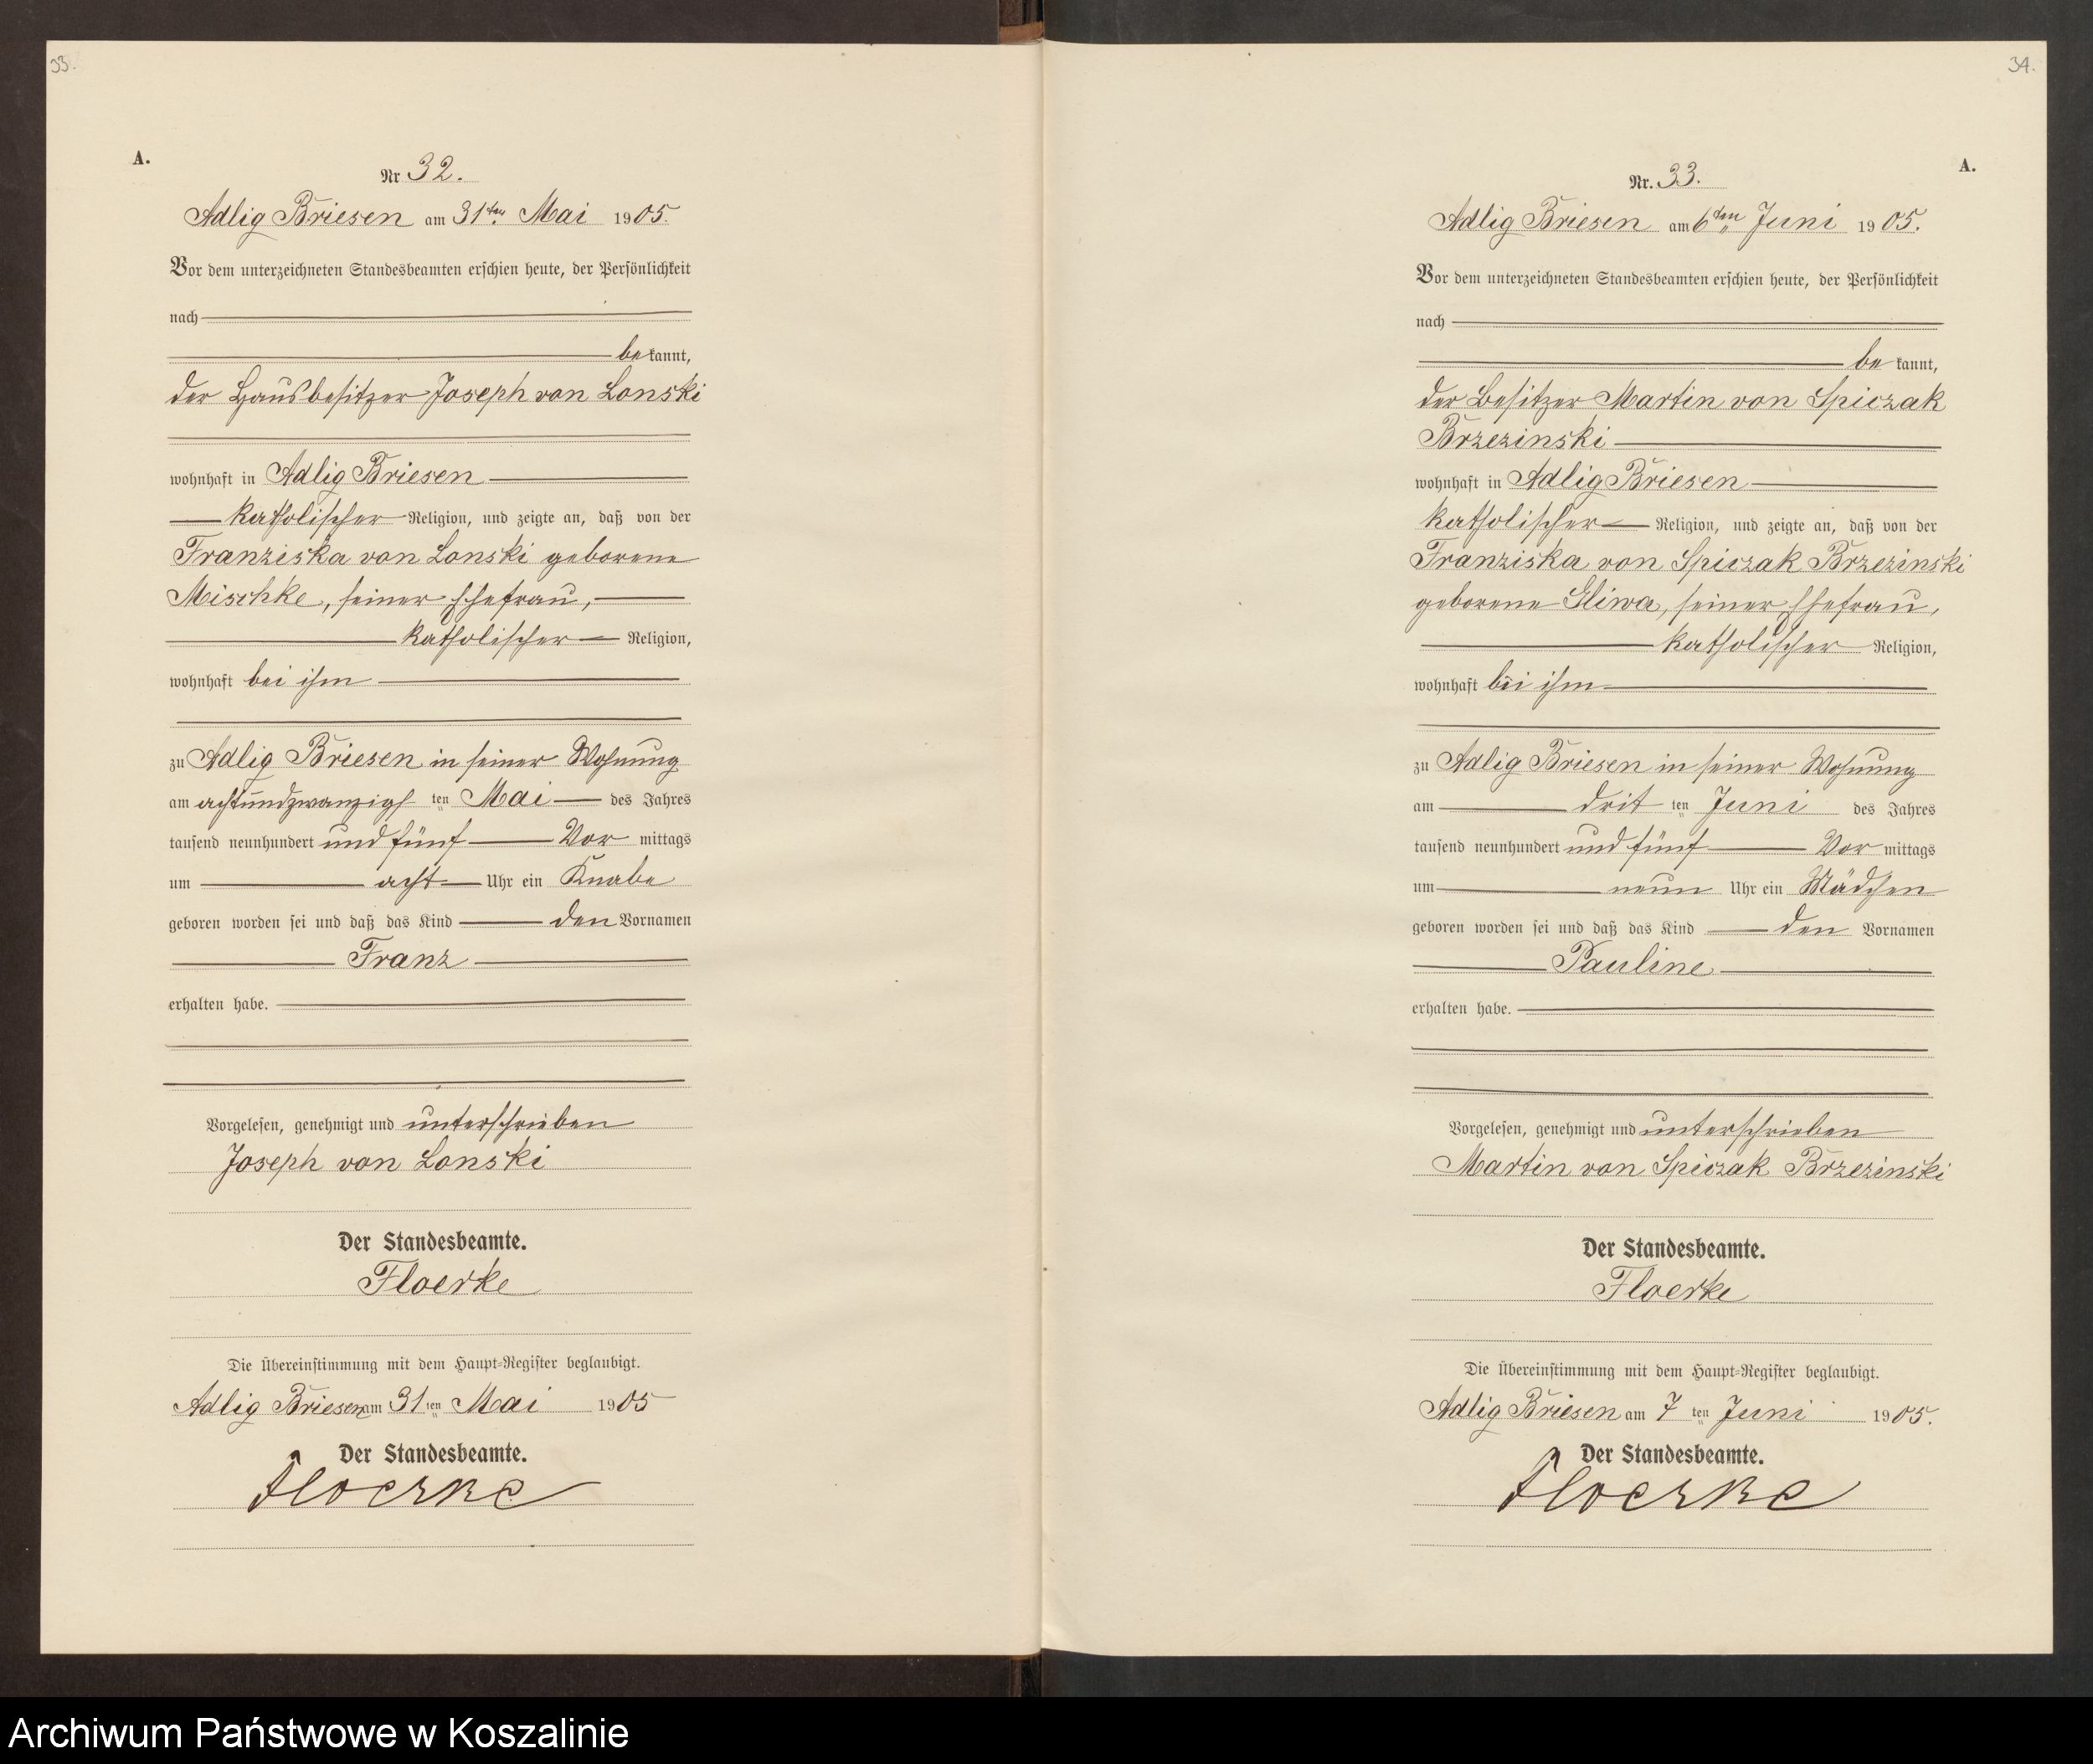 33.
A.
Nr 32.
Adlig Briesen am 31ten Mai 1905.
Vor dem unterzeichneten Standesbeamten erschien heute, der Persönlichkeit
nach
bekannt,
der Hausbesitzer Joseph von Lonski
wohnhaft in Adlig Briesen
katholischer Religion, und zeigte an, daß von der
Franziska von Lonski geborene
Mischke, seiner Ehefrau,
katholischer Religion,
wohnhaft bei ihm
zu Adlig Briesen in seiner Wohnung
am achtundzwanzigsten Mai des Jahres
tausend neunhundert und fünf Vor mittags
um acht Uhr ein Knabe
geboren worden sei und daß das Kind den Vornamen
Franz
erhalten habe.
Vorgelesen, genehmigt und unterschrieben
Joseph von Lonski
Der Standesbeamte.
Floerke
Die Übereinstimmung mit dem Haupt-Register beglaubigt.
Adlig Briesen am 31ten Mai 1905
Der Standesbeamte.
Floerke
34.
A.
Nr. 33.
Adlig Briesen am 6ten Juni 1905.
Vor dem unterzeichneten Standesbeamten erschien heute, der Persönlichkeit
nach
bekannt,
der Besitzer Martin von Spiczak
Brzezinski
wohnhaft in Adlig Briesen
katholischer Religion, und zeigte an, daß von der
Franziska von Spiczak Brzezinski
geborene Gliwa, seiner Ehefrau,
katholischer Religion,
wohnhaft bei ihm
zu Adlig Briesen in seiner Wohnung
am dritten Juni des Jahres
tausend neunhundert und fünf Vor mittags
um neun Uhr ein Mädchen
geboren worden sei und daß das Kind den Vornamen
Pauline
erhalten habe.
Vorgelesen, genehmigt und unterschrieben
Martin von Spiczak Brzezinski
Der Standesbeamte.
Floerke
Die Übereinstimmung mit dem Haupt-Register beglaubigt.
Adlig Briesen am 7ten Juni 1905.
Der Standesbeamte.
Floerke
Archiwum Państwowe w Koszalinie